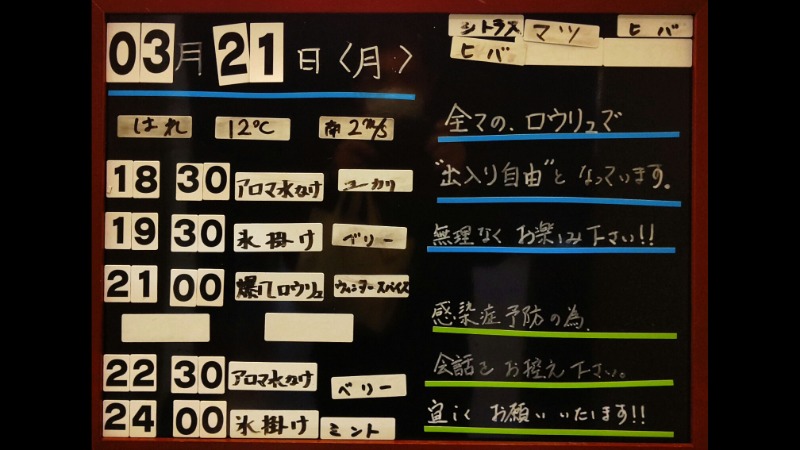 03月21日〈月〉
はれ 12℃ 南2m/s
18 30 アロマ水かけ ユーカリ
19 30 氷掛け ベリー
21 00 爆風ロウリュ ウィンタースパイス
22 30 アロマ水かけ ベリー
24 00 氷掛け ミント
シトラス マツ ヒバ
ヒバ
全ての、ロウリュで
"出入り自由"となっています。
無理なくお楽しみ下さい!!
感染症予防の為、
会話をお控え下さい。
宜しくお願いいたします!!